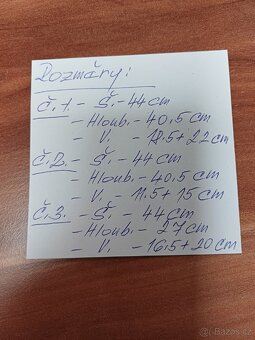 Rozměry:
č.1. - Š. - 44 cm
- Hloub. - 40,5 cm
- V. - 18.5 + 22 cm
č.2. - Š. - 44 cm
- Hloub. - 40,5 cm
- V. - 11.5 + 15 cm
č.3. - Š. - 44 cm
- Hloub. - 27 cm
- V. - 16.5 + 20 cm
Bazos.cz